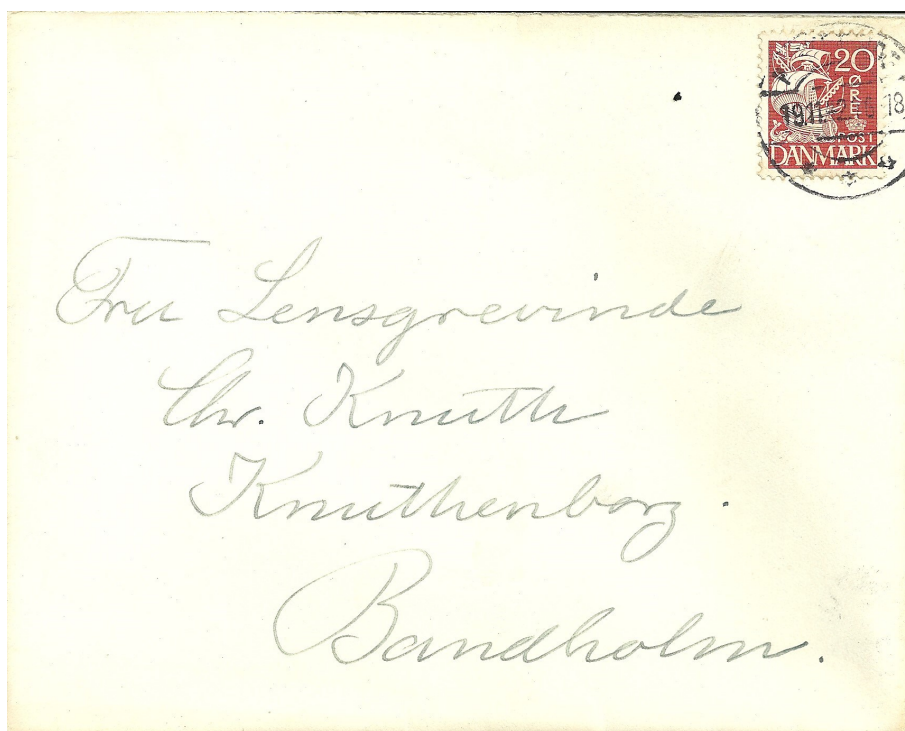 20
ØRE
POST
DANMARK
Fru Lensgrevinde
Chr. Knuth
Knuthenborg.
Bandholm.